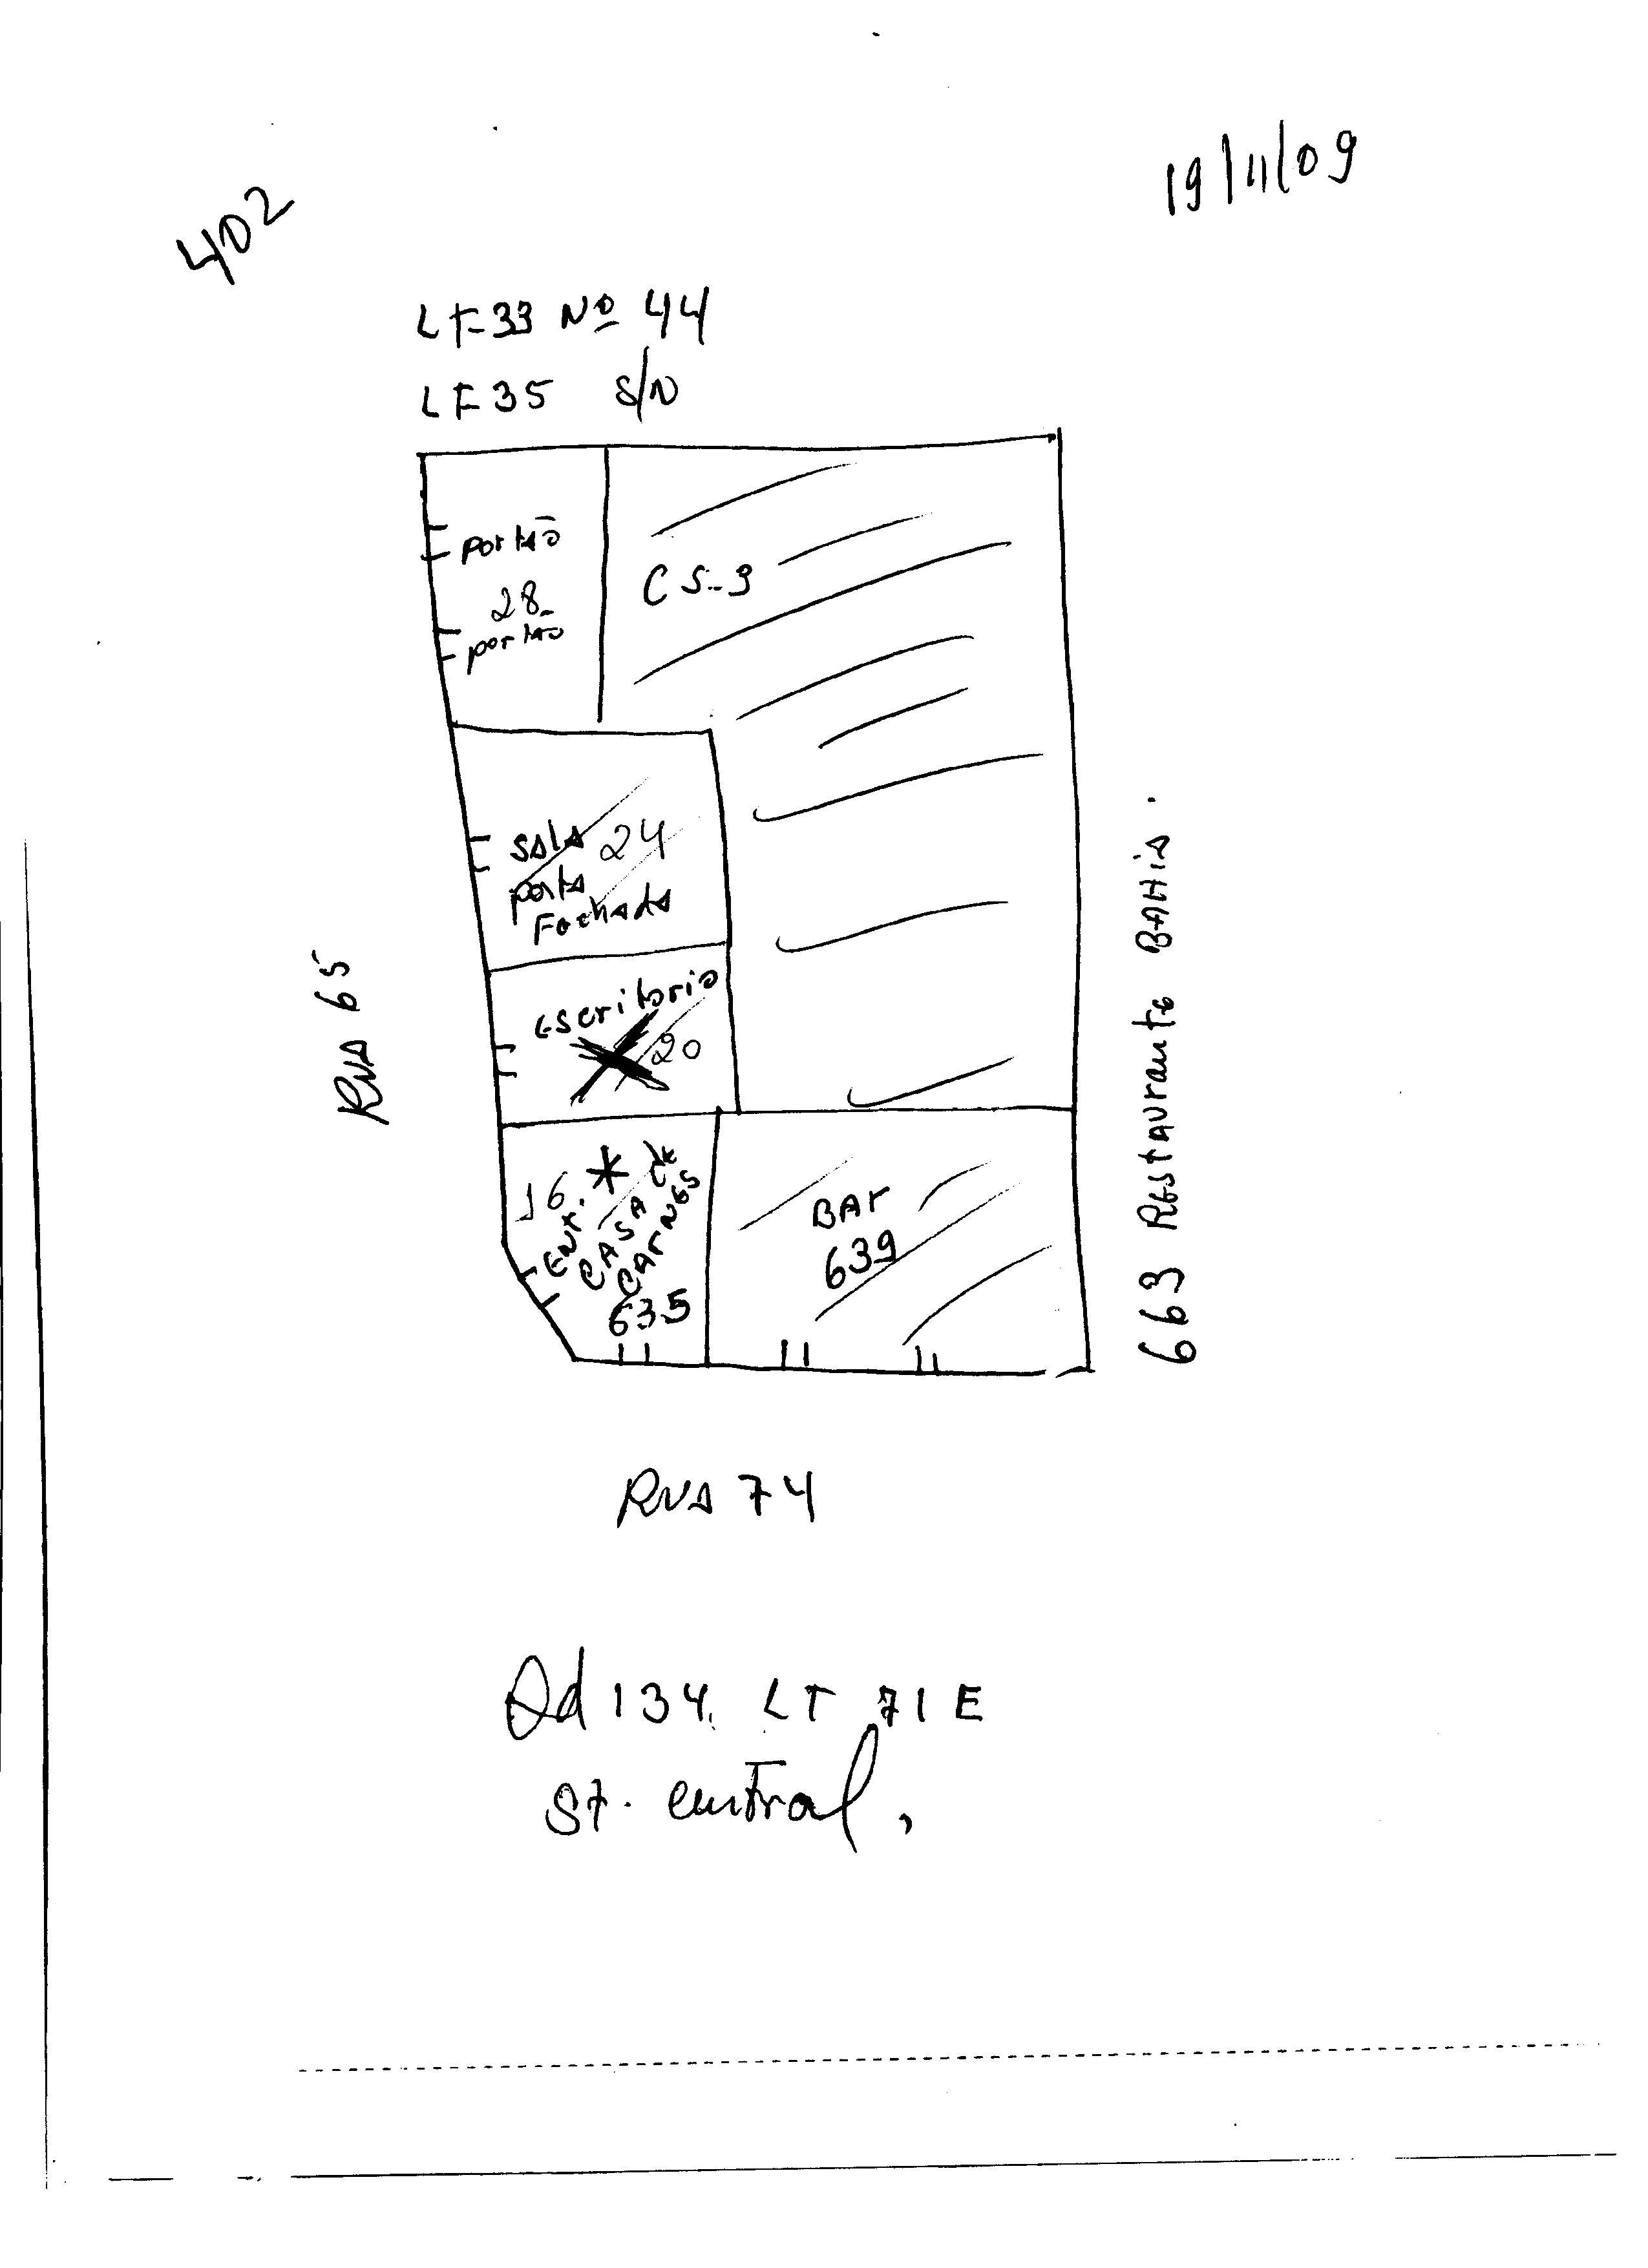 402
19/11/09
LT 33 Nº 44
LT 35 S/N
portão
28
portão
CS-3
sala 24
porta
Fechada
escritorio
20
16.
Ent.
CASA de
CARNES
635
BAr
639
RUA 65
663 Restaurante BAHia.
RUA 74
Qd 134. LT 71E
St. central,